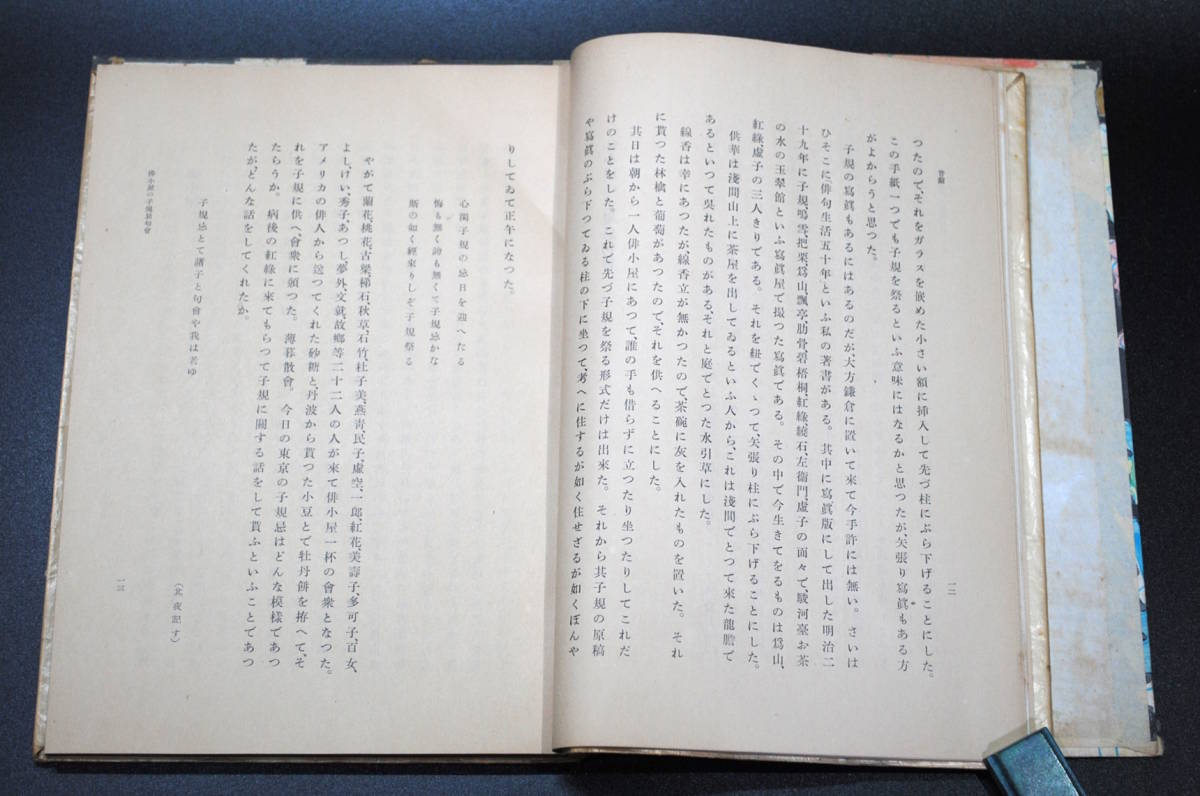 つたので、それをガラスを嵌めた小さい額に挿入して先づ柱にぶら下げることにした。
この手紙一つでも子規を祭るといふ意味にはなるかと思つたが、矢張り寫眞もある方
がよからうと思つた。
子規の寫眞もあるにはあるのだが、大方鎌倉に置いて來て今手許には無い。さいは
ひそこに俳句生活五十年といふ私の著書がある。其中に寫眞版にして出した明治二
十九年に子規、鳴雪、把栗、爲山、飄亭、肋骨、碧梧桐、紅綠、繞石、左衞門、虛子の面々で、駿河臺お茶
の水の玉翠館といふ寫眞屋で撮つた寫眞である。その中で今生きてをるものは爲山、
紅綠、虛子の三人きりである。それを紐でくゝつて、矢張り柱にぶら下げることにした。
供華は淺間山上に茶屋を出してゐるといふ人から、これは淺間でとつて來た龍膽で
あるといつて吳れたものがある、それと庭でとつた水引草にした。
線香は幸にあつたが、線香立が無かつたので、茶碗に灰を入れたものを置いた。それ
に貰つた林檎と葡萄があつたので、それを供へることにした。
其日は朝から一人俳小屋にあつて、誰の手も借らずに立つたり坐つたりしてこれだ
けのことをした。これで先づ子規を祭る形式だけは出來た。それから其子規の原稿
や寫眞のぶら下つてゐる柱の下に坐つて、考へに住するが如く住せざるが如くぼんや
一二
りしてゐて正午になつた。
心濁子規の忌日を迎へたる
悔も無く誇も無くて子規忌かな
斯の如く經來りしぞ子規祭る
やがて蘭花、桃花、古梁、梯石、秋草、石竹、杜子美、燕靑、民子、虛空、一郎、紅花、美壽子、多可子、百女、
よし、けい、秀子、あつし、夢外、文就、故鄕等二十二人の人が來て俳小屋一杯の會衆となつた。
アメリカの俳人から送つてくれた砂糖と、丹波から貰つた小豆とで牡丹餠を拵へて、そ
れを子規に供へ、會衆に頒つた。薄暮散會。今日の東京の子規忌はどんな模樣であつ
たらうか。病後の紅綠に來てもらつて子規に關する話をして貰ふといふことであつ
たが、どんな話をしてくれたか。
子規忌とて諸子と句會や我は若ゆ
（其夜記す）
俳小屋の子規忌句會
一三